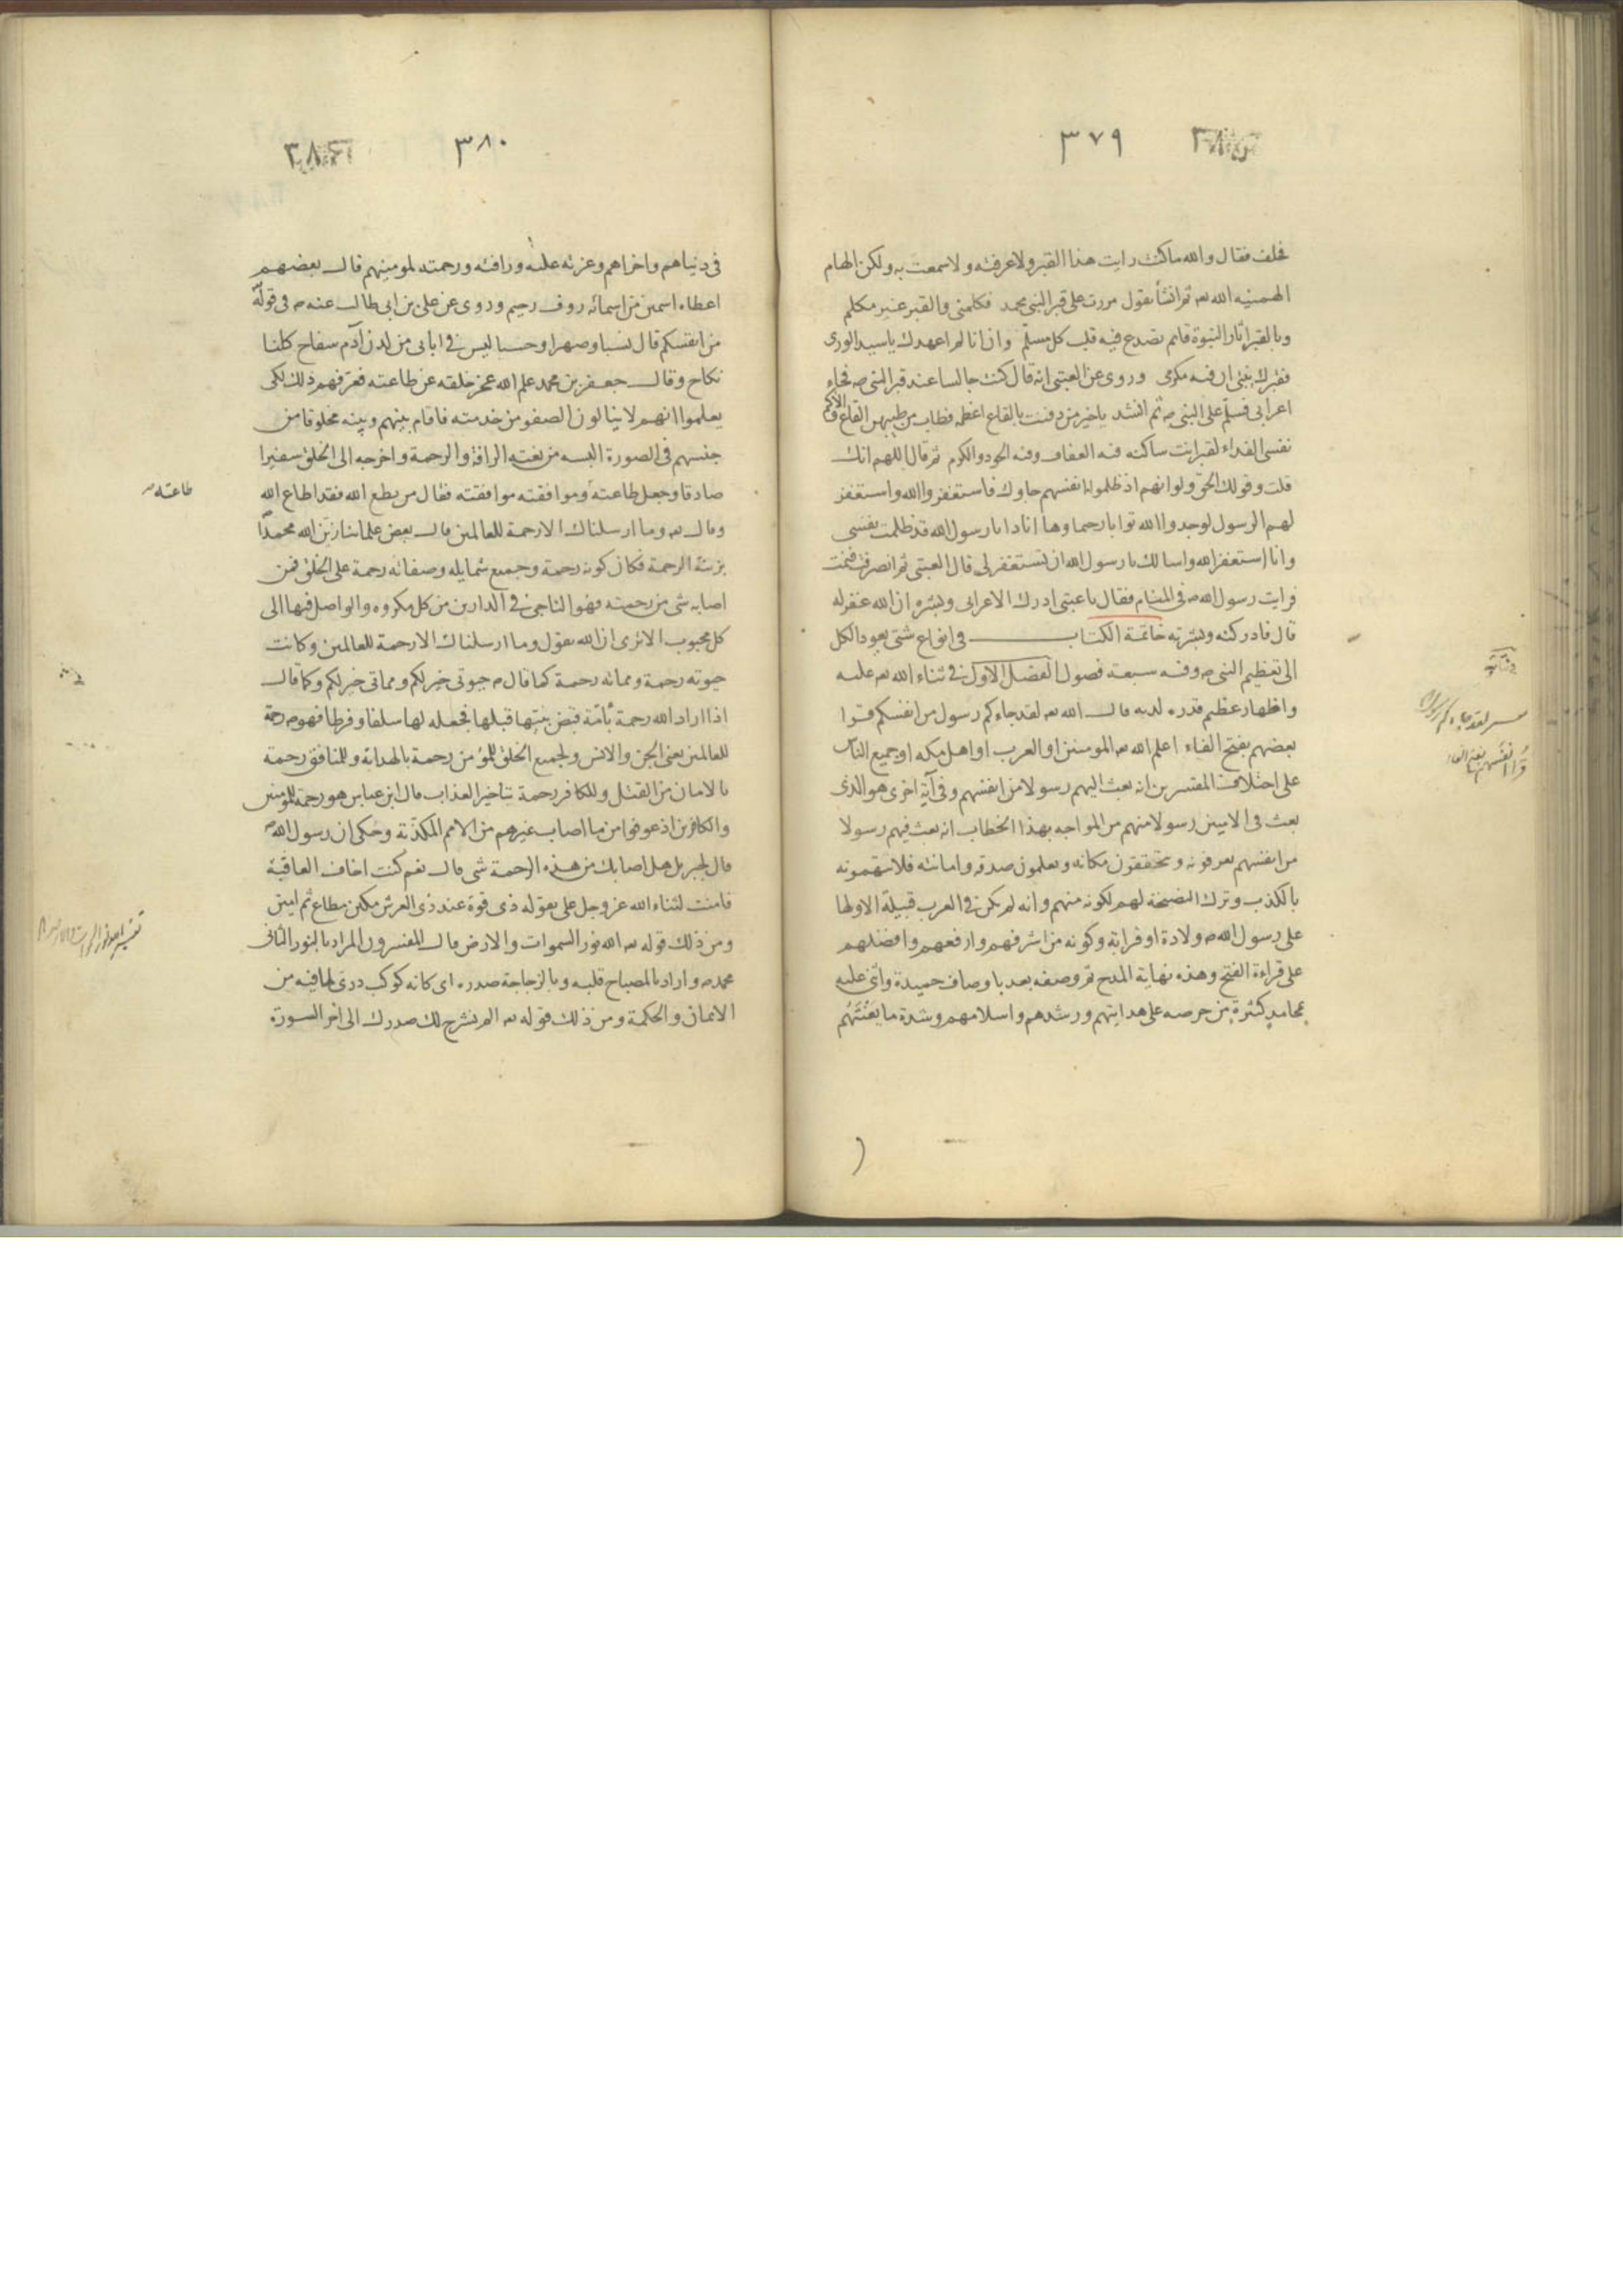 ٣٧٩
فحلف فقال والله ما كنت رايت هذا القبر ولا عرفته ولا سمعت به ولكن الهام
الهمنيه الله تعـ ثم انشأ يقول مررت على قبر النبي محمد فكلمني والقبر غير مكلم
وبالقبر اثار النبوة قايم تصدع فيه قلب كل مسلم وان انا لم اعهدك يا سيد الورى
فقبرك ينبئ ان فيه مكرمى وروى عن العبتى انه قال كنت جالسا عند قبر النبى صـ فجاء
اعرابى فسلم على النبى صـ ثم انشد ياخير من دفنت بالقاع اعظمه فطاب من طيبهن القاع والاكم
نفسى الفداء لقبر انت ساكنه فيه العفاف وفيه الجود والكرم ثم قال اللهم انك
قلت وقولك الحق ولو انهم اذ ظلموا انفسهم جاوك فاستغفروا الله واستغفر
لهم الرسول لوجدوا الله توابا رحيما وها انا ذا يا رسول الله قد ظلمت نفسى
وانا استغفر الله واسالك يا رسول الله ان تستغفر لى قال العبتى ثم انصرفت فنمت
فرايت رسول الله صـ فى المنام فقال يا عبتى ادرك الاعرابى وبشره ان الله غفر له
قال فادركته وبشرته خاتمة الكتاب فى انواع شتى يعود الكل
الى تعظيم النبى صـ وفيه سبعة فصول الفصل الاول فى ثناء الله تعـ عليه
واظهار عظيم قدره لديه قال الله تعـ لقد جاءكم رسول من انفسكم قرا
بعضهم بفتح الفاء اعلم الله تعـ المومنين او العرب او اهل مكه او جميع الناس
على اختلاف المفسرين انه بعث اليهم رسولا من انفسهم وفى آية اخرى هو الذى
بعث فى الاميين رسولا منهم من المواجه بهذا الخطاب انه بعث فيهم رسولا
من انفسهم يعرفونه ويتحققون مكانه ويعلمون صدقه وامانته فلا يتهمونه
بالكذب وترك النصيحة لهم لكونه منهم وانه لم يكن فى العرب قبيلة الا ولها
على رسول الله صـ ولادة او قرابة وكونه من اشرفهم وارفعهم وافضلهم
على قراءة الفتح وهذه نهاية المدح ثم وصفه بعد باوصاف حميدة واثنى عليه
بمحامد كثيرة من حرصه على هدايتهم ورشدهم واسلامهم وشدة ما يعنتهم
٣٨٠
فى دنياهم واخراهم وعزته عليه ورافته ورحمته لمومنيهم قال بعضهم
اعطاه اسمين من اسمائه روف رحيم وروى عن على بن ابى طالب عنه صـ فى قوله
من انفسكم قال نسبا وصهرا وحسبا ليس فى ابائى من لدن آدم سفاح كلنا
نكاح وقال جعفر بن محمد علم الله عجز خلقه عن طاعته فعرفهم ذلك لكى
يعلموا انهم لا ينالون الصفو من خدمته فاقام بينهم وبينه مخلوقا من
جنسهم فى الصورة البسه من نعته الرافة والرحمة واخرجه الى الخلق سفيرا
صادقا وجعل طاعته وموافقته موافقته فقال من يطع الله فقد اطاع الله
طاعته
وقال تعـ وما ارسلناك الا رحمة للعالمين قال بعض علمائنا زين الله محمدا
بزينة الرحمة فكان كونه رحمة وجميع شمايله وصفاته رحمة على الخلق فمن
اصابه شى من رحمته فهو الناجى فى الدارين من كل مكروه والواصل فيها الى
كل محبوب الا ترى ان الله يقول وما ارسلناك الا رحمة للعالمين وكانت
حيوته رحمة ومماته رحمة كما قال م حيوتى خير لكم ومماتى خير لكم وكما قال
اذا اراد الله رحمة بأمة قبض نبيها قبلها فجعله لها سلفا وفرطا فهو صـ رحمة
للعالمين يعنى الجن والانس ولجميع الخلق للمؤمن رحمة بالهداية وللمنافق رحمة
بالامان من القتل وللكافر رحمة بتاخير العذاب قال ابن عباس هو رحمة للمومنين
والكافرين اذ عوفوا من ما اصاب غيرهم من الامم المكذبة وحكى ان رسول الله صـ
قال لجبريل هل اصابك من هذه الرحمة شى قال نعم كنت اخاف العاقبة
فامنت لثناء الله عز وجل على بقوله ذى قوة عند ذى العرش مكين مطاع ثم امين
ومن ذلك قوله تعـ الله نور السموات والارض قال المفسرون المراد بالنور الثانى
محمد صـ واراد بالمصباح قلبه وبالزجاجة صدره اى كانه كوكب درى لما فيه من
الايمان والحكمة ومن ذلك قوله تعـ الم نشرح لك صدرك الى اخر السورة